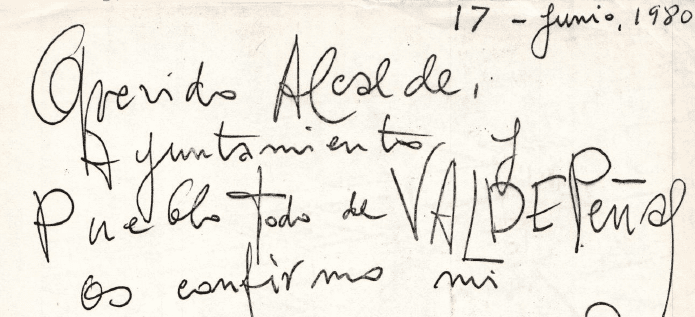 17 - Junio, 1980
Querido Alcalde,
Ayuntamiento, y
Pueblo todo de VALDEPEñas
os confirmo mi